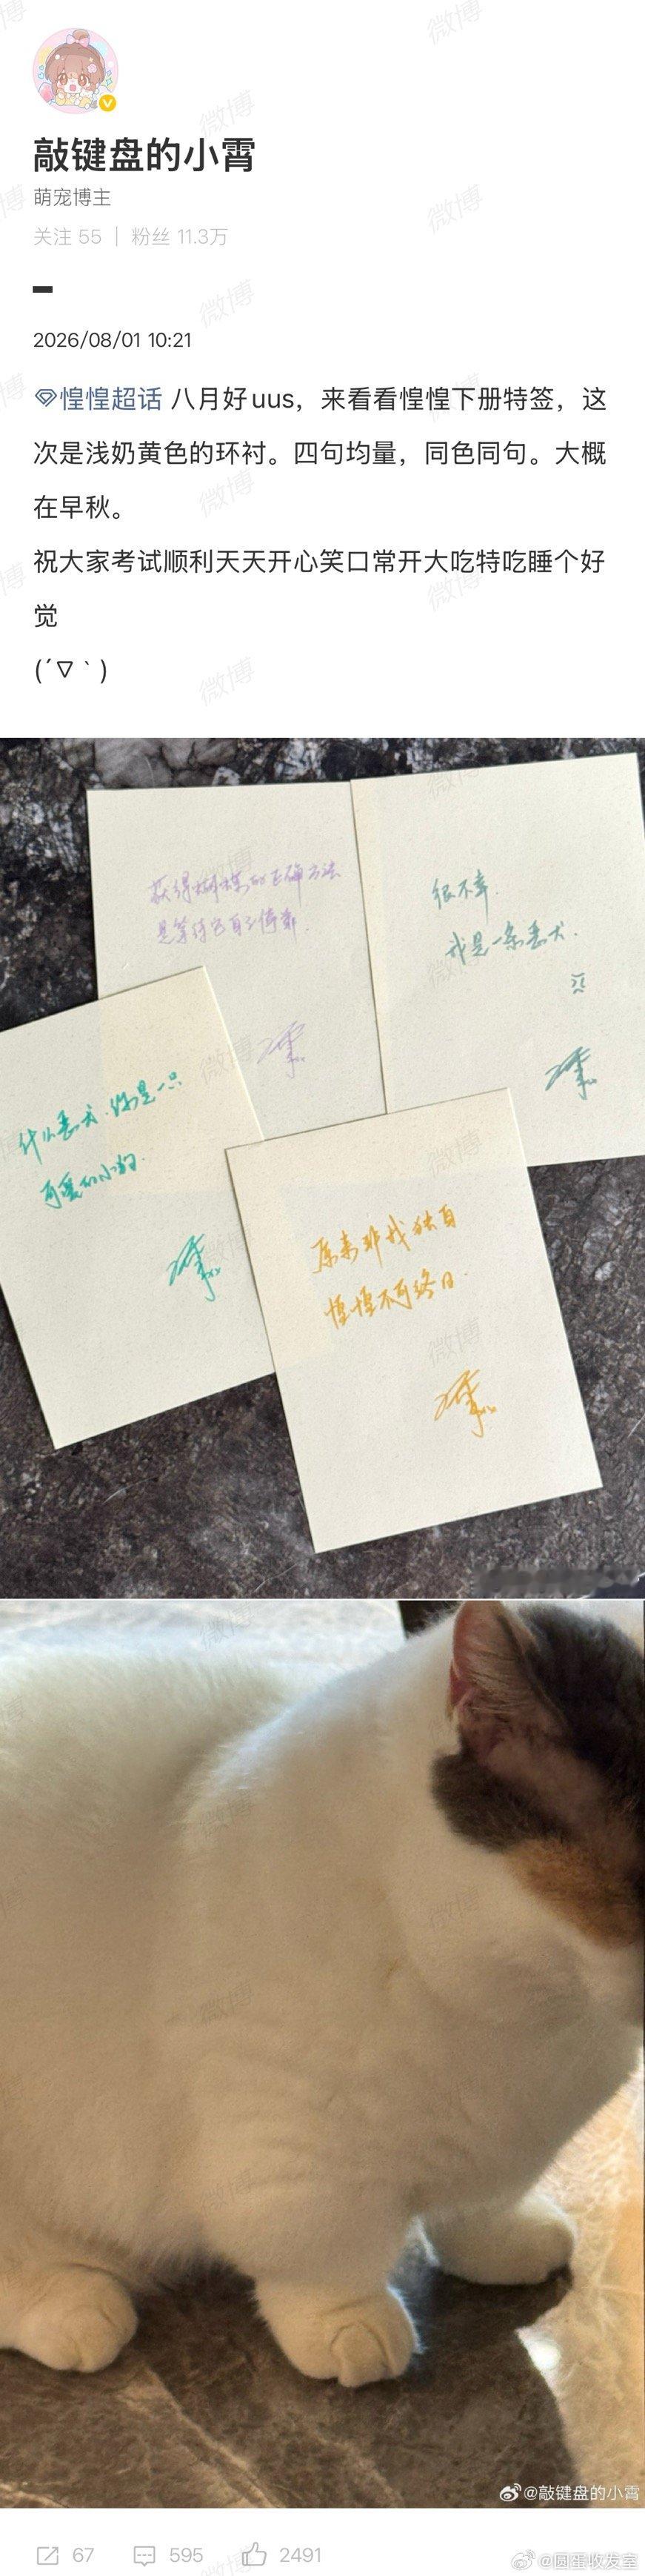 敲键盘的小霄
萌宠博主
关注 55 | 粉丝 11.3万
2026/08/01 10:21
惶惶超话 八月好uus，来看看惶惶下册特签，这
次是浅奶黄色的环衬。四句均量，同色同句。大概
在早秋。
祝大家考试顺利天天开心笑口常开大吃特吃睡个好
觉
(´∇｀)
获得蝴蝶的正确方法
是等待它自己停靠.
很不幸.
我是一条丢犬.
什么丢犬.你是一只
可爱的小狗.
原来非我独自
惶惶不可终日.
@敲键盘的小霄
67 595 2491
@圆蛋收发室
微博